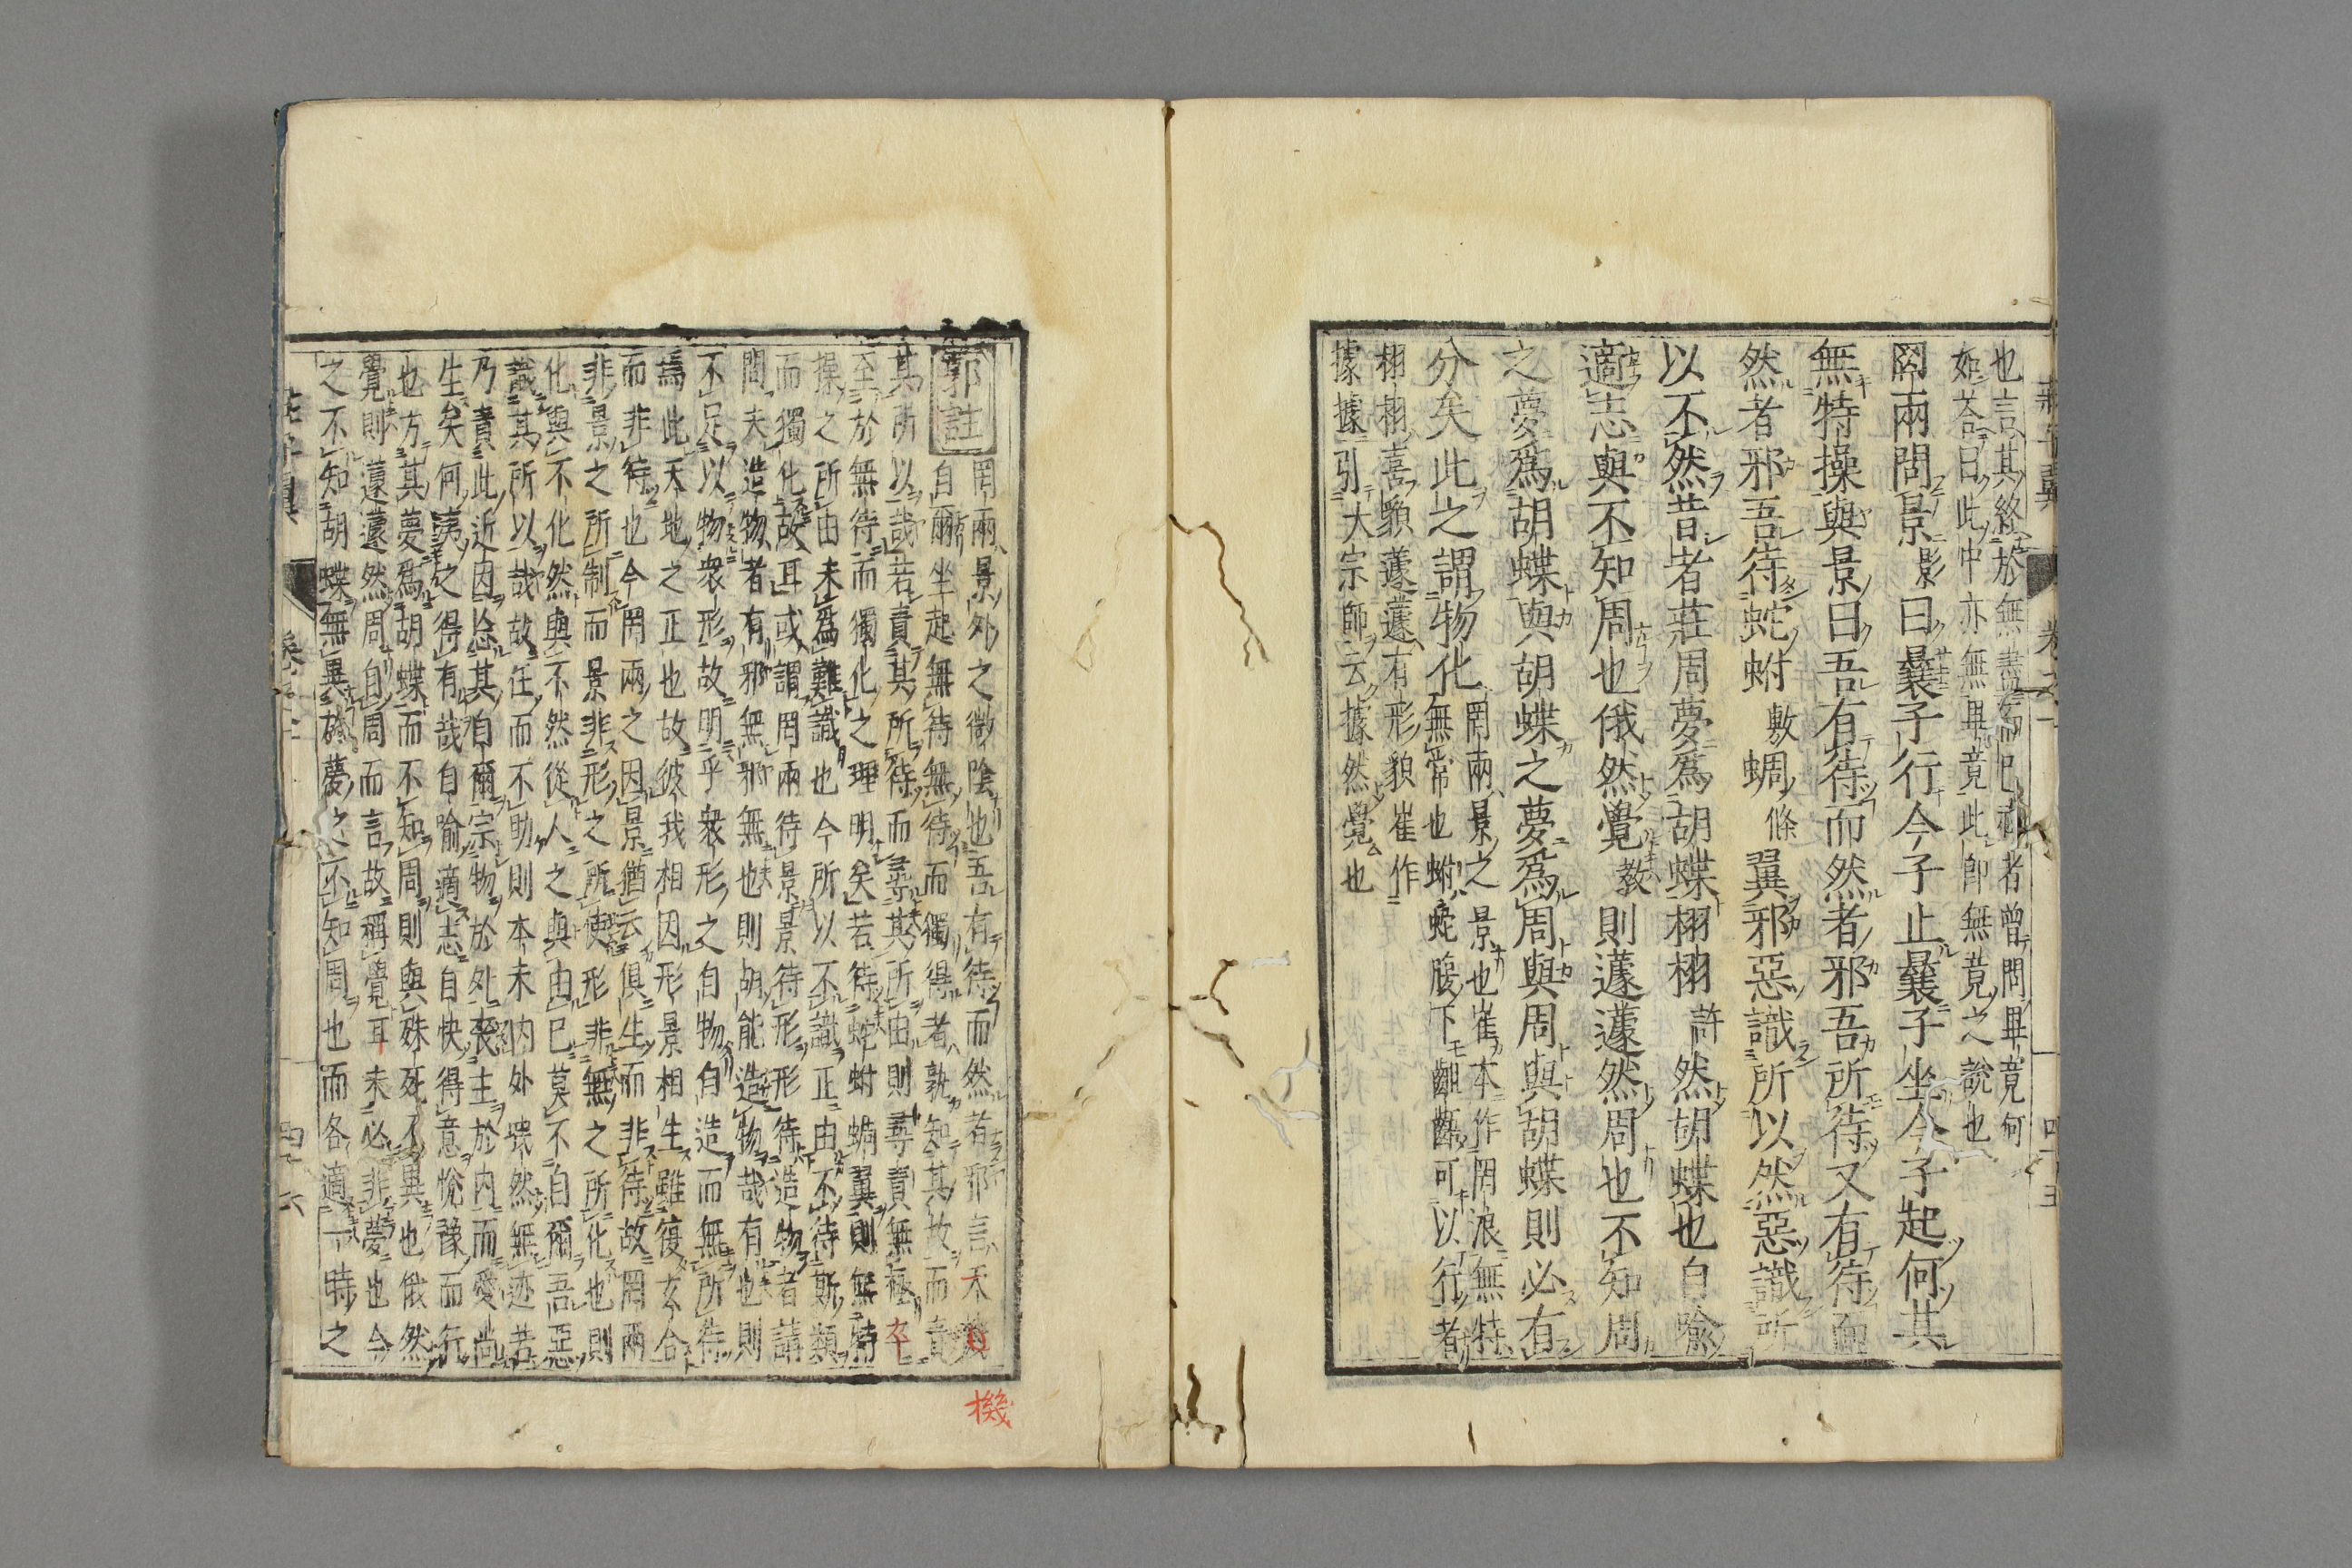 也言其終於無盡而已矣者曾問畢竟何
如荅曰此中亦無畢竟此即無竟之說也
罔兩問景影曰曩子行今子止曩子坐今子起何其
無特操與景曰吾有待而然者邪吾所待又有待而
然者邪吾待蛇蚹敷蜩條翼邪惡識所以然惡識所
以不然昔者莊周夢爲胡蝶栩栩許然胡蝶也自喻
適志與不知周也俄然覺教則蘧蘧然周也不知周
之夢爲胡蝶與胡蝶之夢爲周與周與胡蝶則必有
分矣此之謂物化
罔兩景之景也崔本作罔浪無特
無常也蚹蛇腹下齟齬可以行者
栩栩喜貌蘧蘧有形貌崔作
據據引大宗師云據然覺也
郭註
罔兩景外之微陰也吾有待而然者邪言天機
自爾坐起無待無待而獨得者孰知其故而責
其所以哉若責其所待而尋其所由則尋責無極卒
至於無待而獨化之理明矣若待蛇蚹蜩翼則無特
操之所由未爲難識也今所以不識正由不待斯類
而獨化故耳或謂罔兩待景景待形形待造物者請
問夫造物者有邪無邪無也則胡能造物哉有也則
不足以物衆形故明乎衆形之自物自造而無所待
焉此天地之正也故彼我相因形景相生雖復玄合
而非待也今罔兩之因景猶云俱生而非待故罔兩
非景之所制而景非形之所使形非無之所化也則
化與不化然與不然從人之與由已莫不自爾吾惡
識其所以哉故任而不助則本末內外暢然無迹若
乃責此近因忘其自爾宗物於外喪主於内而愛尚
生矣何夷之得有哉自喻適志自快得意悅豫而行
也方其夢爲胡蝶而不知周則與殊死不異也俄然
覺則蘧蘧然周自周而言故稱覺耳未必非夢也今
之不知胡蝶無異於夢之不知周也而各適一時之
機